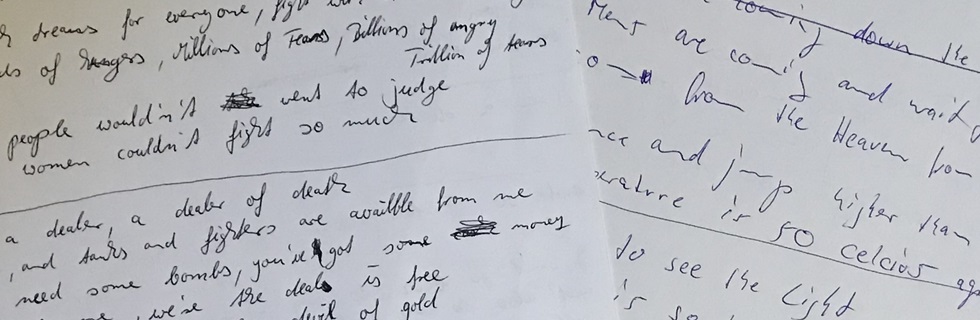 dreams for everyone, fight
of Rangers, Millions of Tears, Billions of angry
Trillion of tears
people wouldn't vent to judge
women couldn't fight so much
a dealer, a dealer of death
, and tanks and fighters are availble from me
need some bombs, you've got some money
we're the deals is free
devil of gold
coming down the
Ment are comig and waitig
from the Heaven from
and jump higher than
is 50 celcios
to see the light
is so